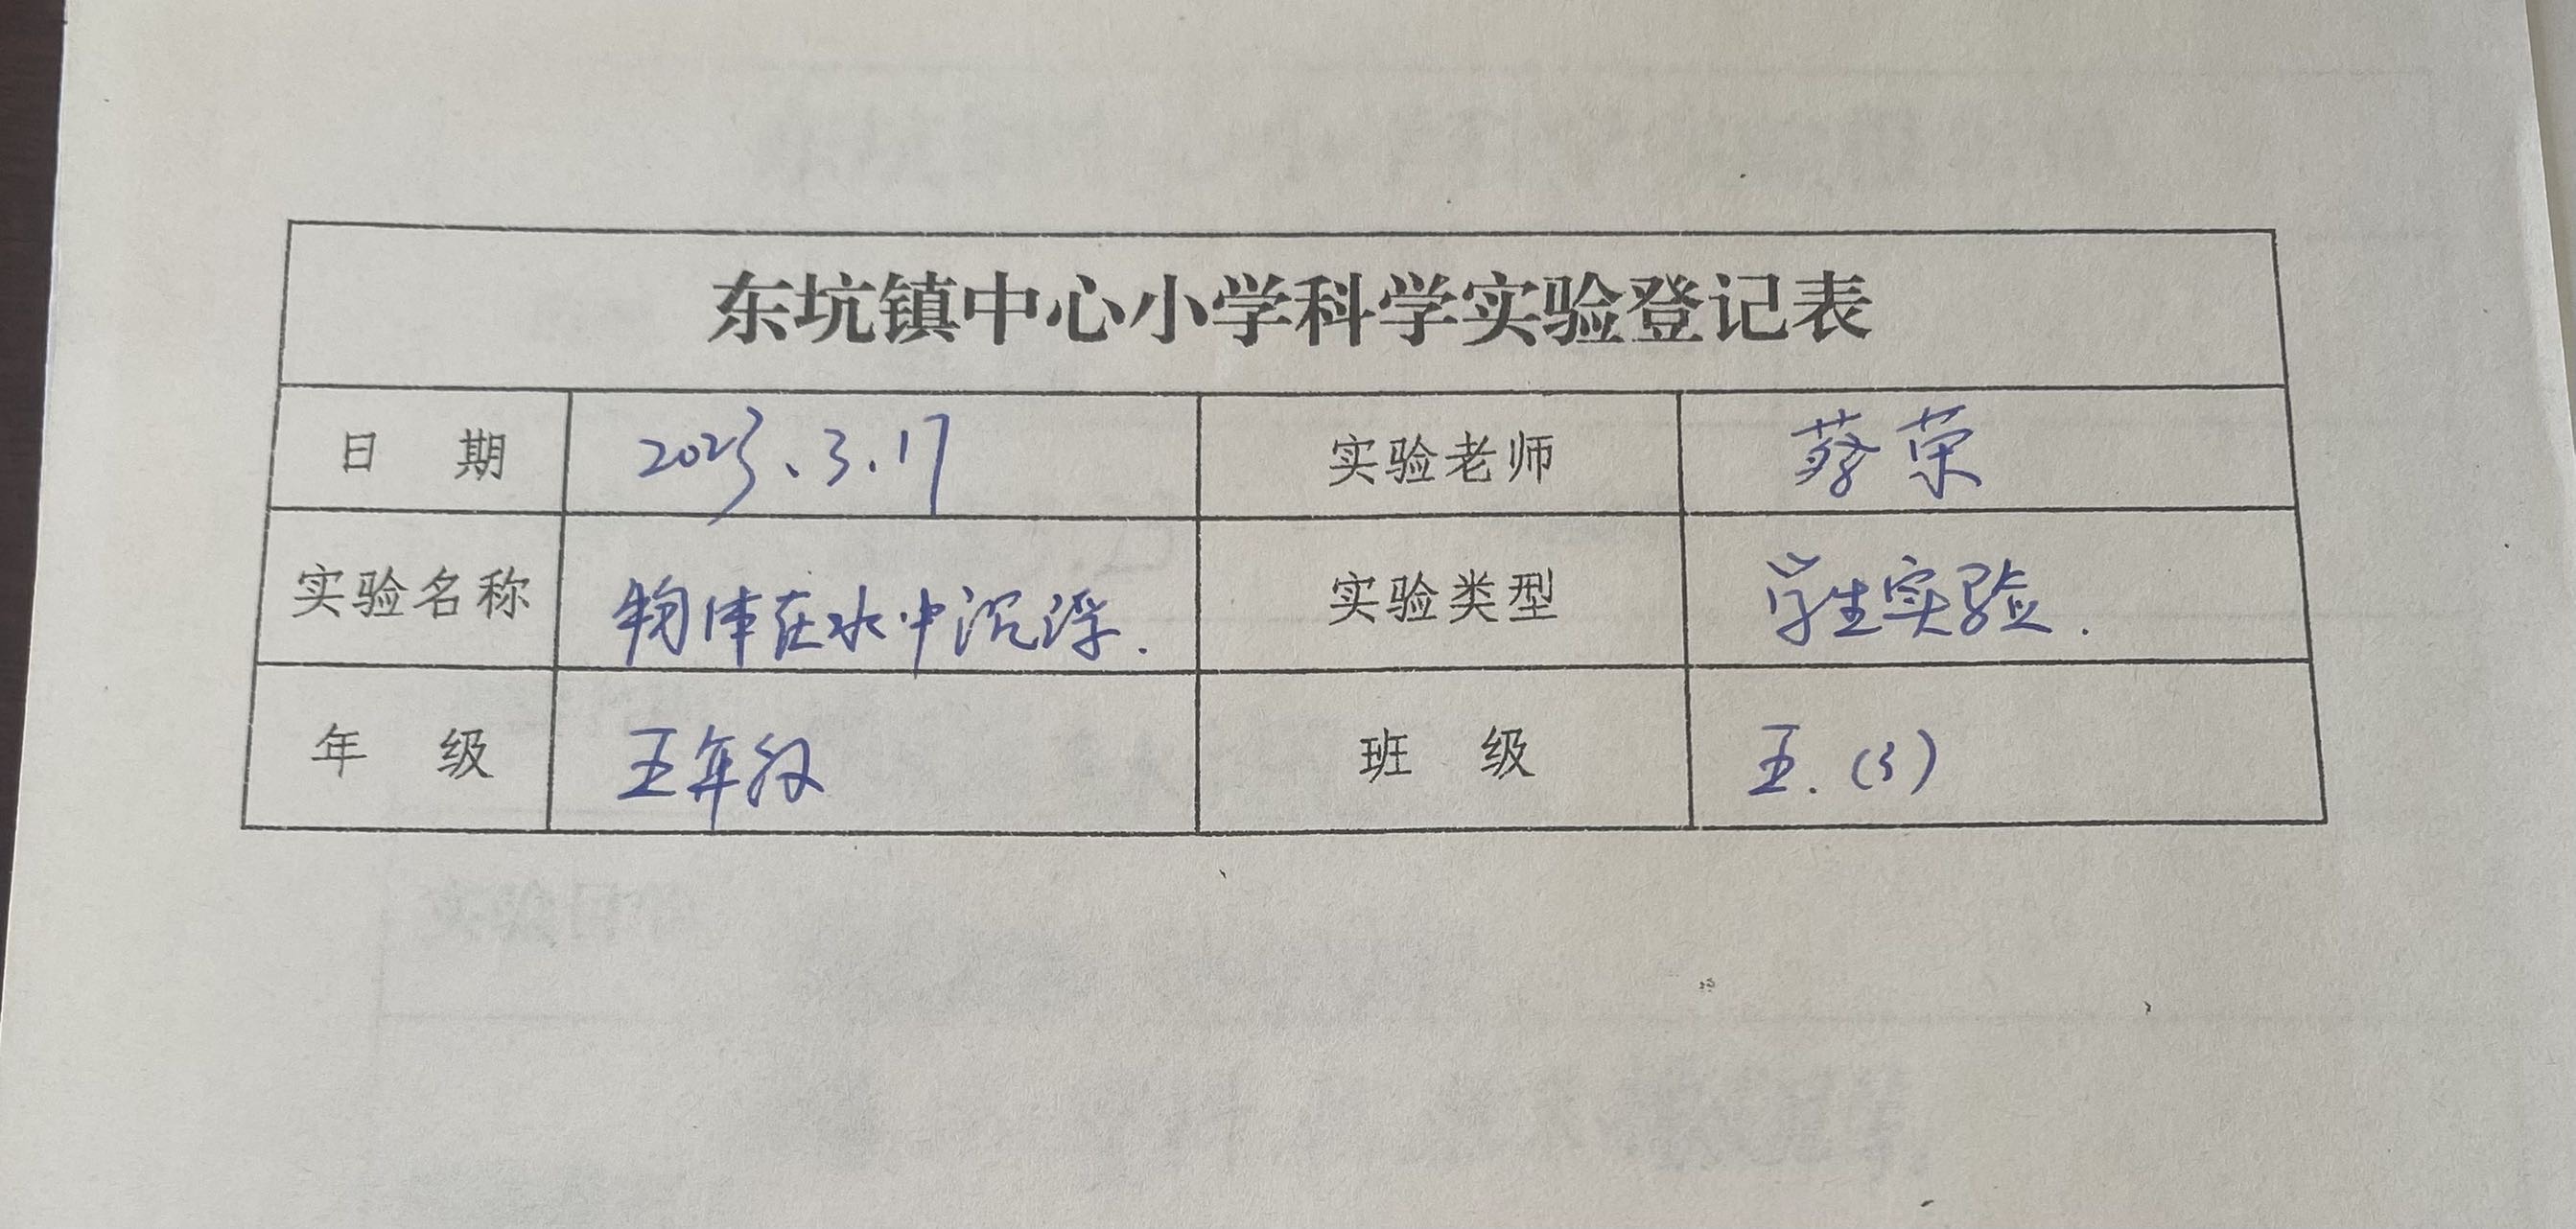 东坑镇中心小学科学实验登记表
日 期 2023.3.17 实验老师 蔡荣
实验名称 物体在水中沉浮. 实验类型 学生实验.
年 级 五年级 班 级 五.(3)